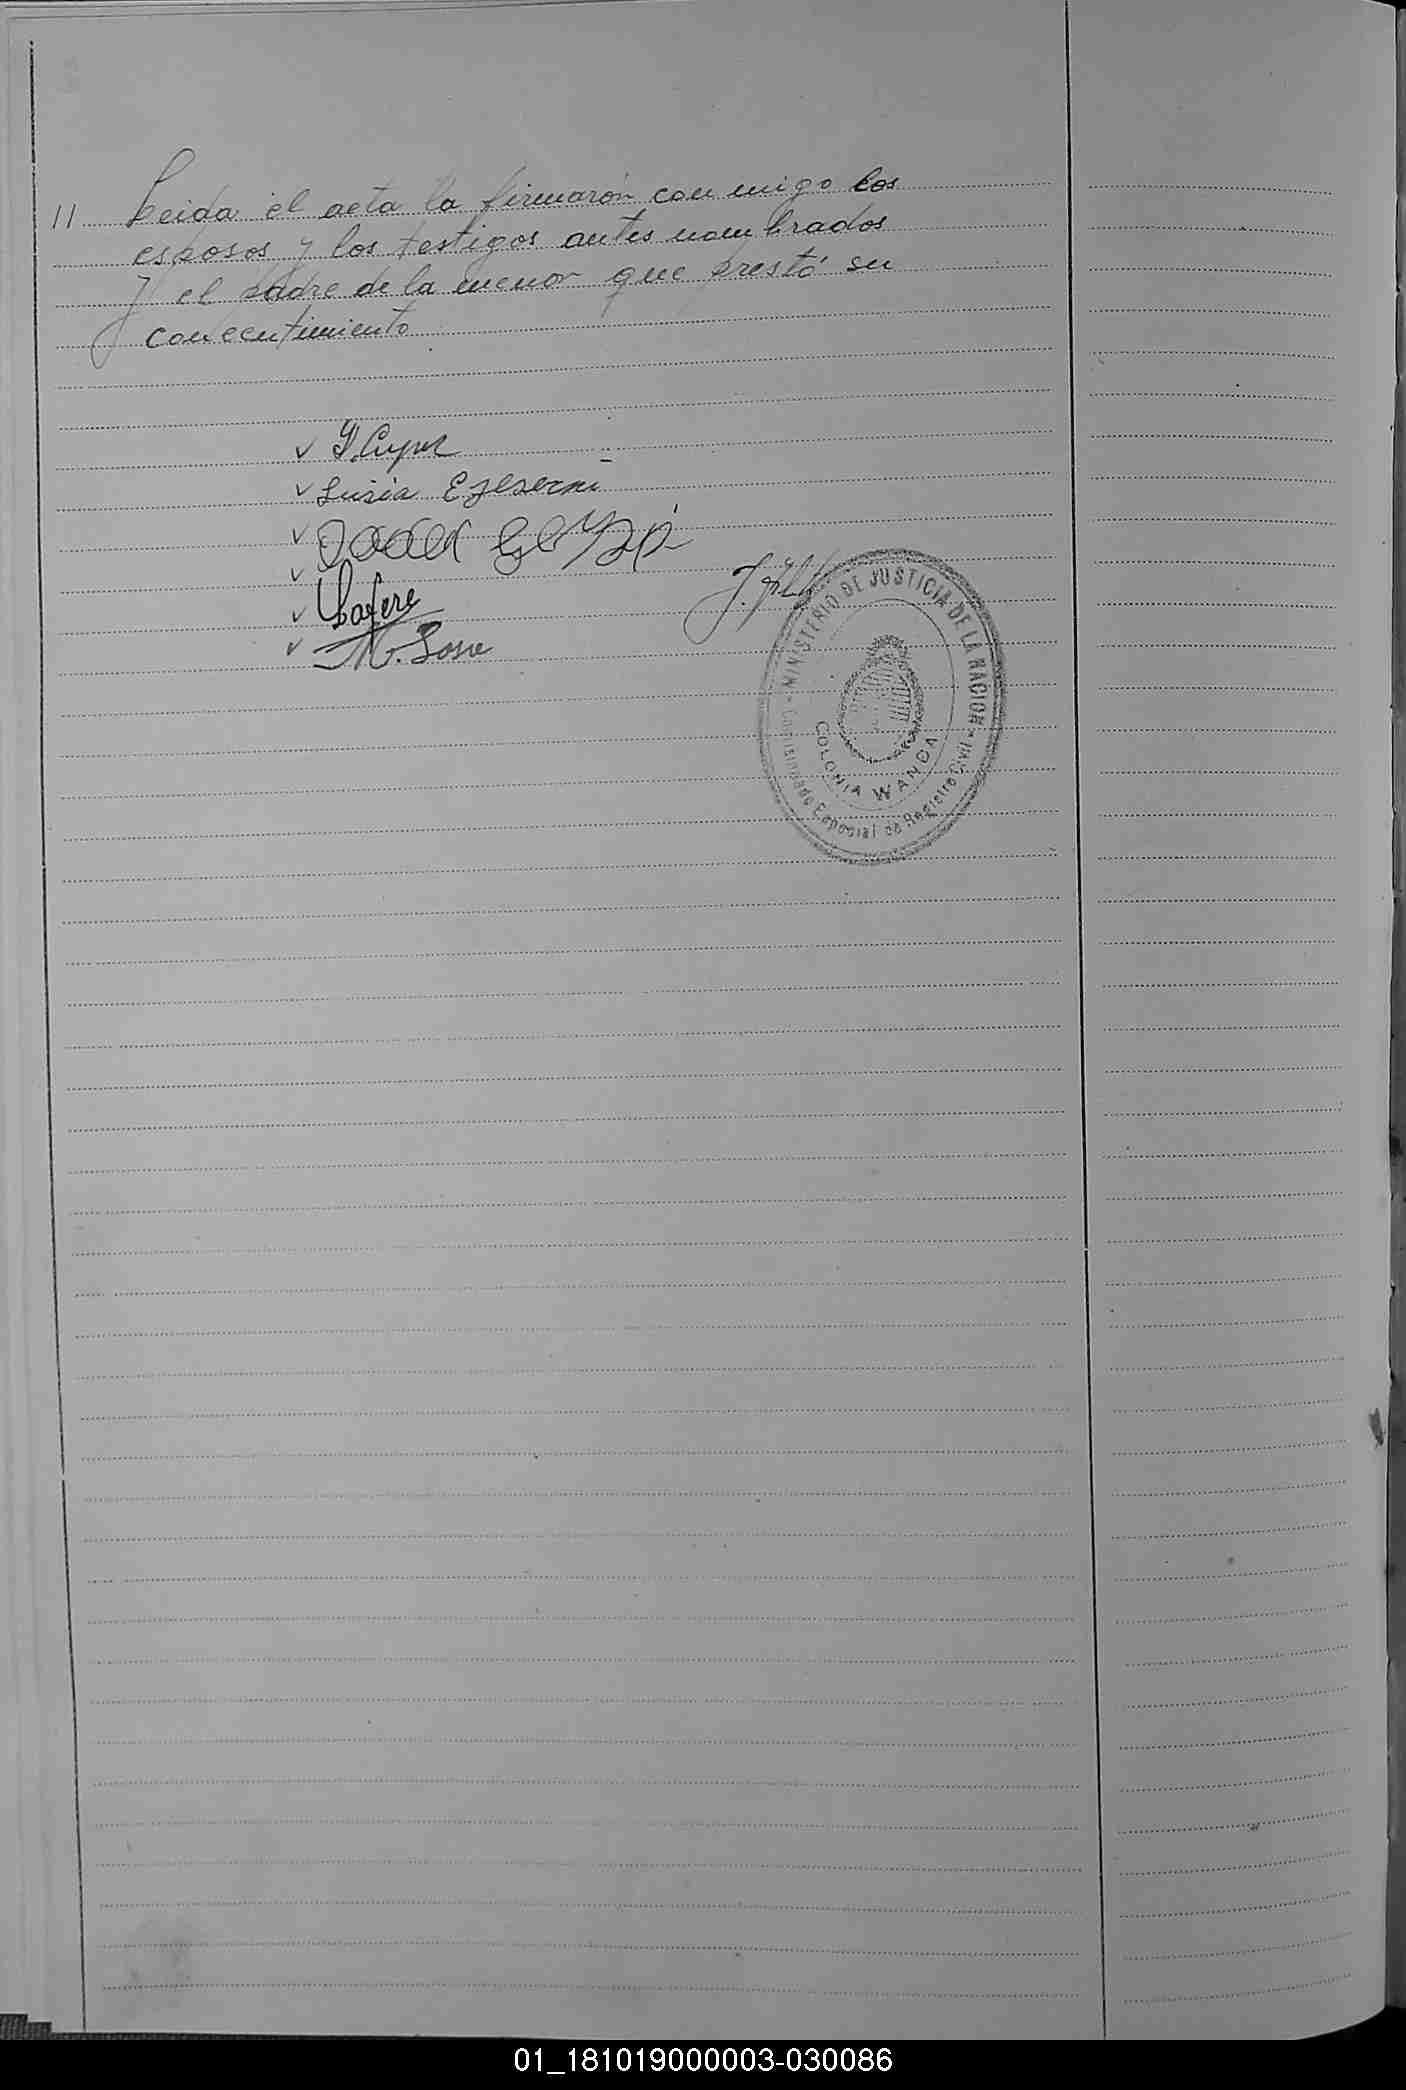 11 Leida el acta la firmarón con migo los
esposos y los testigos antes nombrados
y el padre de la menor que prestó su
concentimiento
Lusia
M. Sosa
MINISTERIO DE JUSTICIA DE LA NACION
Comisionado Especial de Registro Civil
COLONIA WANDA
01_181019000003-030086